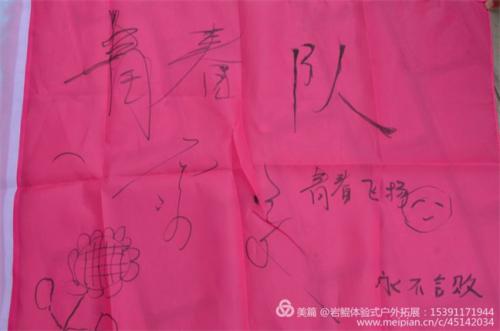 青春队
青春飞扬
永不言败
美篇 @岩鲲体验式户外拓展：15391171944
www.meipian.cn/c/45142034